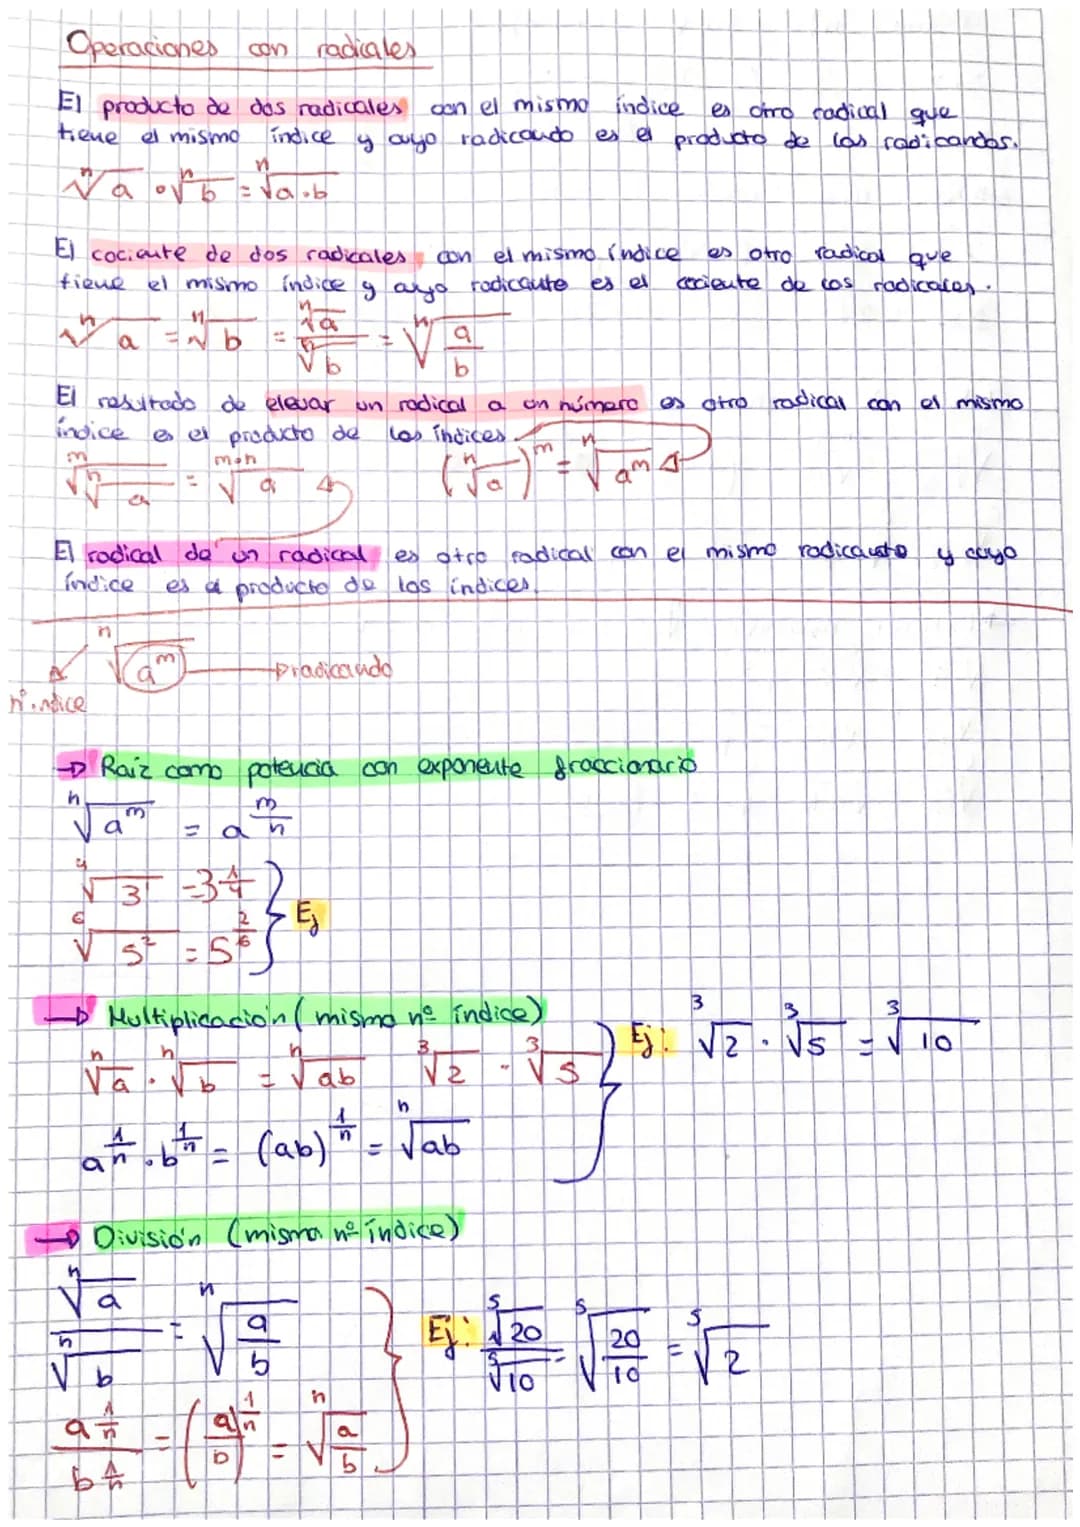 Operaciones con radicales
El producto de dos radicales con el mismo índice es otro radical que
tiene el mismo índice y cuyo radicando es el producto de los radicandos.
ⁿ√a · ⁿ√b = ⁿ√a·b
El cociente de dos radicales con el mismo índice es otro radical que
tiene el mismo índice y cuyo radicante es el cociente de los radicales.
ⁿ√a = ⁿ√b = ⁿ√a / ⁿ√b = ⁿ√(a/b)
El resultado de elevar un radical a un número es otro radical con el mismo
índice es el producto de los índices.
ᵐ√ⁿ√a = ᵐ·ⁿ√a (ⁿ√a)ᵐ = ⁿ√aᵐ
El radical de un radical es otro radical con el mismo radicante y cuyo
índice es el producto de los índices.
ⁿ√aᵐ → radicando
nº índice
→ Raíz como potencia con exponente fraccionario
ⁿ√aᵐ = a^(m/n)
⁴√3 = 3^(1/4)
⁶√5² = 5^(2/6) } Ej
→ Multiplicación (mismo nº índice)
ⁿ√a · ⁿ√b = ⁿ√ab ³√2 · ³√5 } Ej: ³√2 · ³√5 = ³√10
a^(1/n) · b^(1/n) = (ab)^(1/n) = ⁿ√ab
→ División (mismo nº índice)
ⁿ√a / ⁿ√b = ⁿ√(a/b) } Ej: ⁵√20 / ⁵√10 = ⁵√(20/10) = ⁵√2
a^(1/n) / b^(1/n) = (a/b)^(1/n) = ⁿ√(a/b)